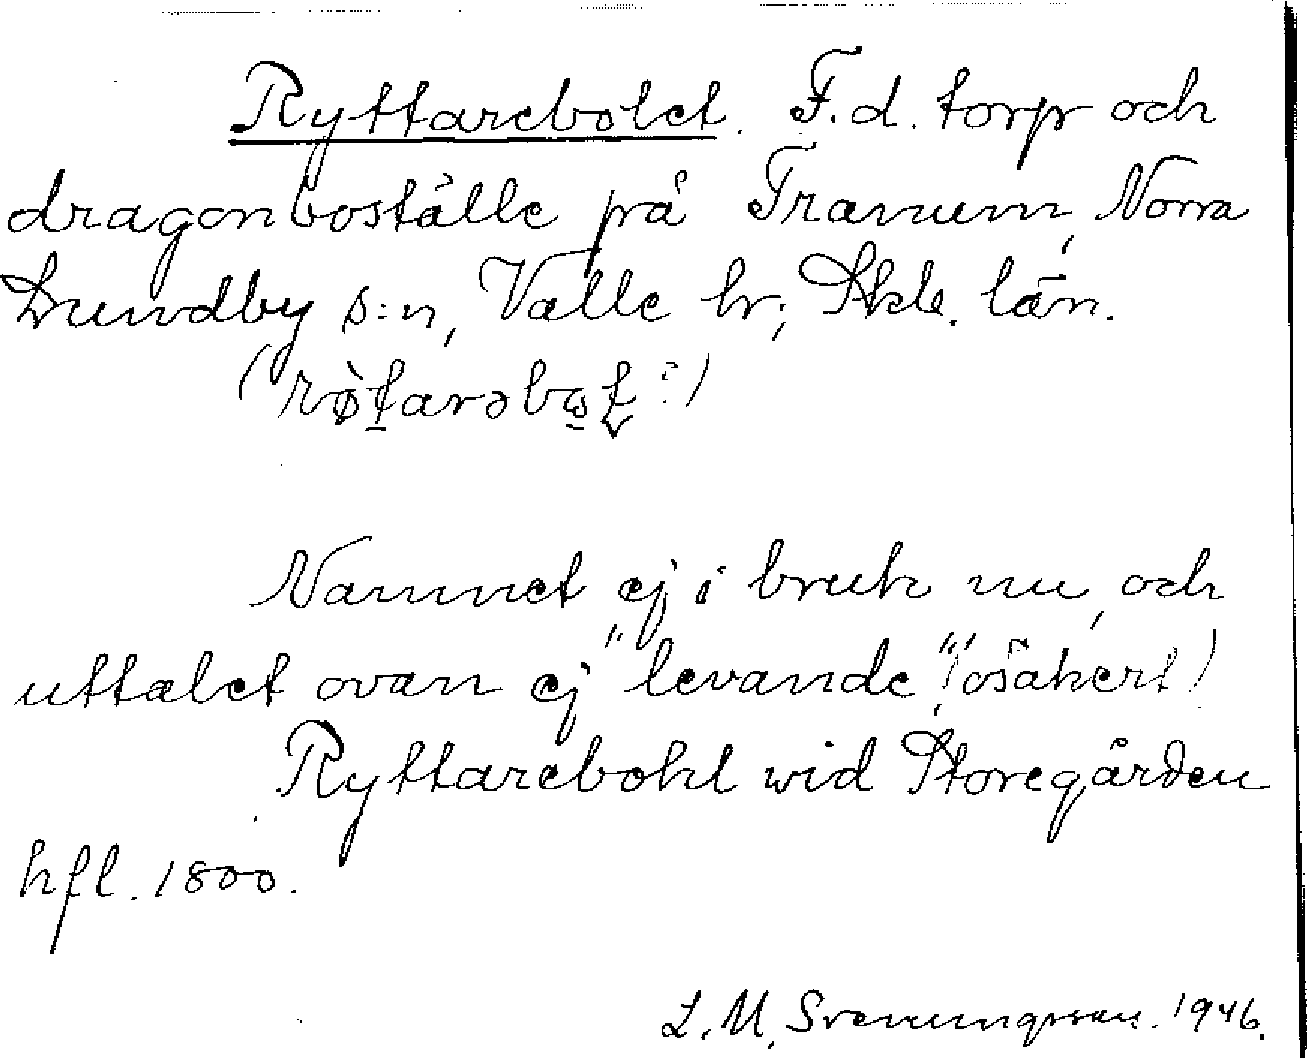 Ryttarebolet. F.d. torp och
dragonboställe på Tranum, Norra
Lundby s:n, Valle hr; Skb. län.
Namnet ej i bruk nu, och
uttalet ovan ej "levande". (osäkert)
Ryttarebohl wid Storegården
hfl. 1800.
L. M. Svenungsson. 1946.